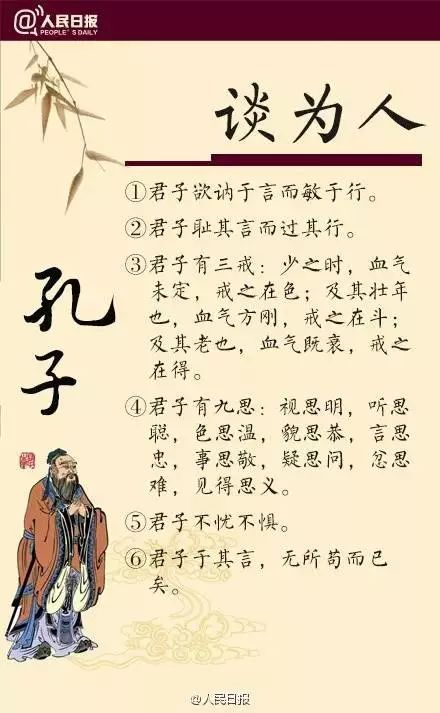 @人民日报
PEOPLE'S DAILY
谈为人
孔子
①君子欲讷于言而敏于行。
②君子耻其言而过其行。
③君子有三戒：少之时，血气
未定，戒之在色；及其壮年
也，血气方刚，戒之在斗；
及其老也，血气既衰，戒之
在得。
④君子有九思：视思明，听思
聪，色思温，貌思恭，言思
忠，事思敬，疑思问，忿思
难，见得思义。
⑤君子不忧不惧。
⑥君子于其言，无所苟而已
矣。
@人民日报